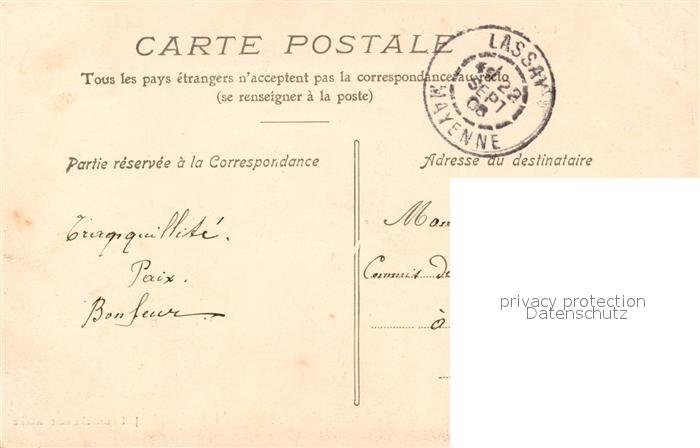 CARTE POSTALE
Tous les pays étrangers n'acceptent pas la correspondance au recto
(se renseigner à la poste)
LASSAY
22
SEPT
08
MAYENNE
Partie réservée à la Correspondance
Adresse du destinataire
Tranquillité.
Paix.
Bonheur
Commis de
à
privacy protection
Datenschutz